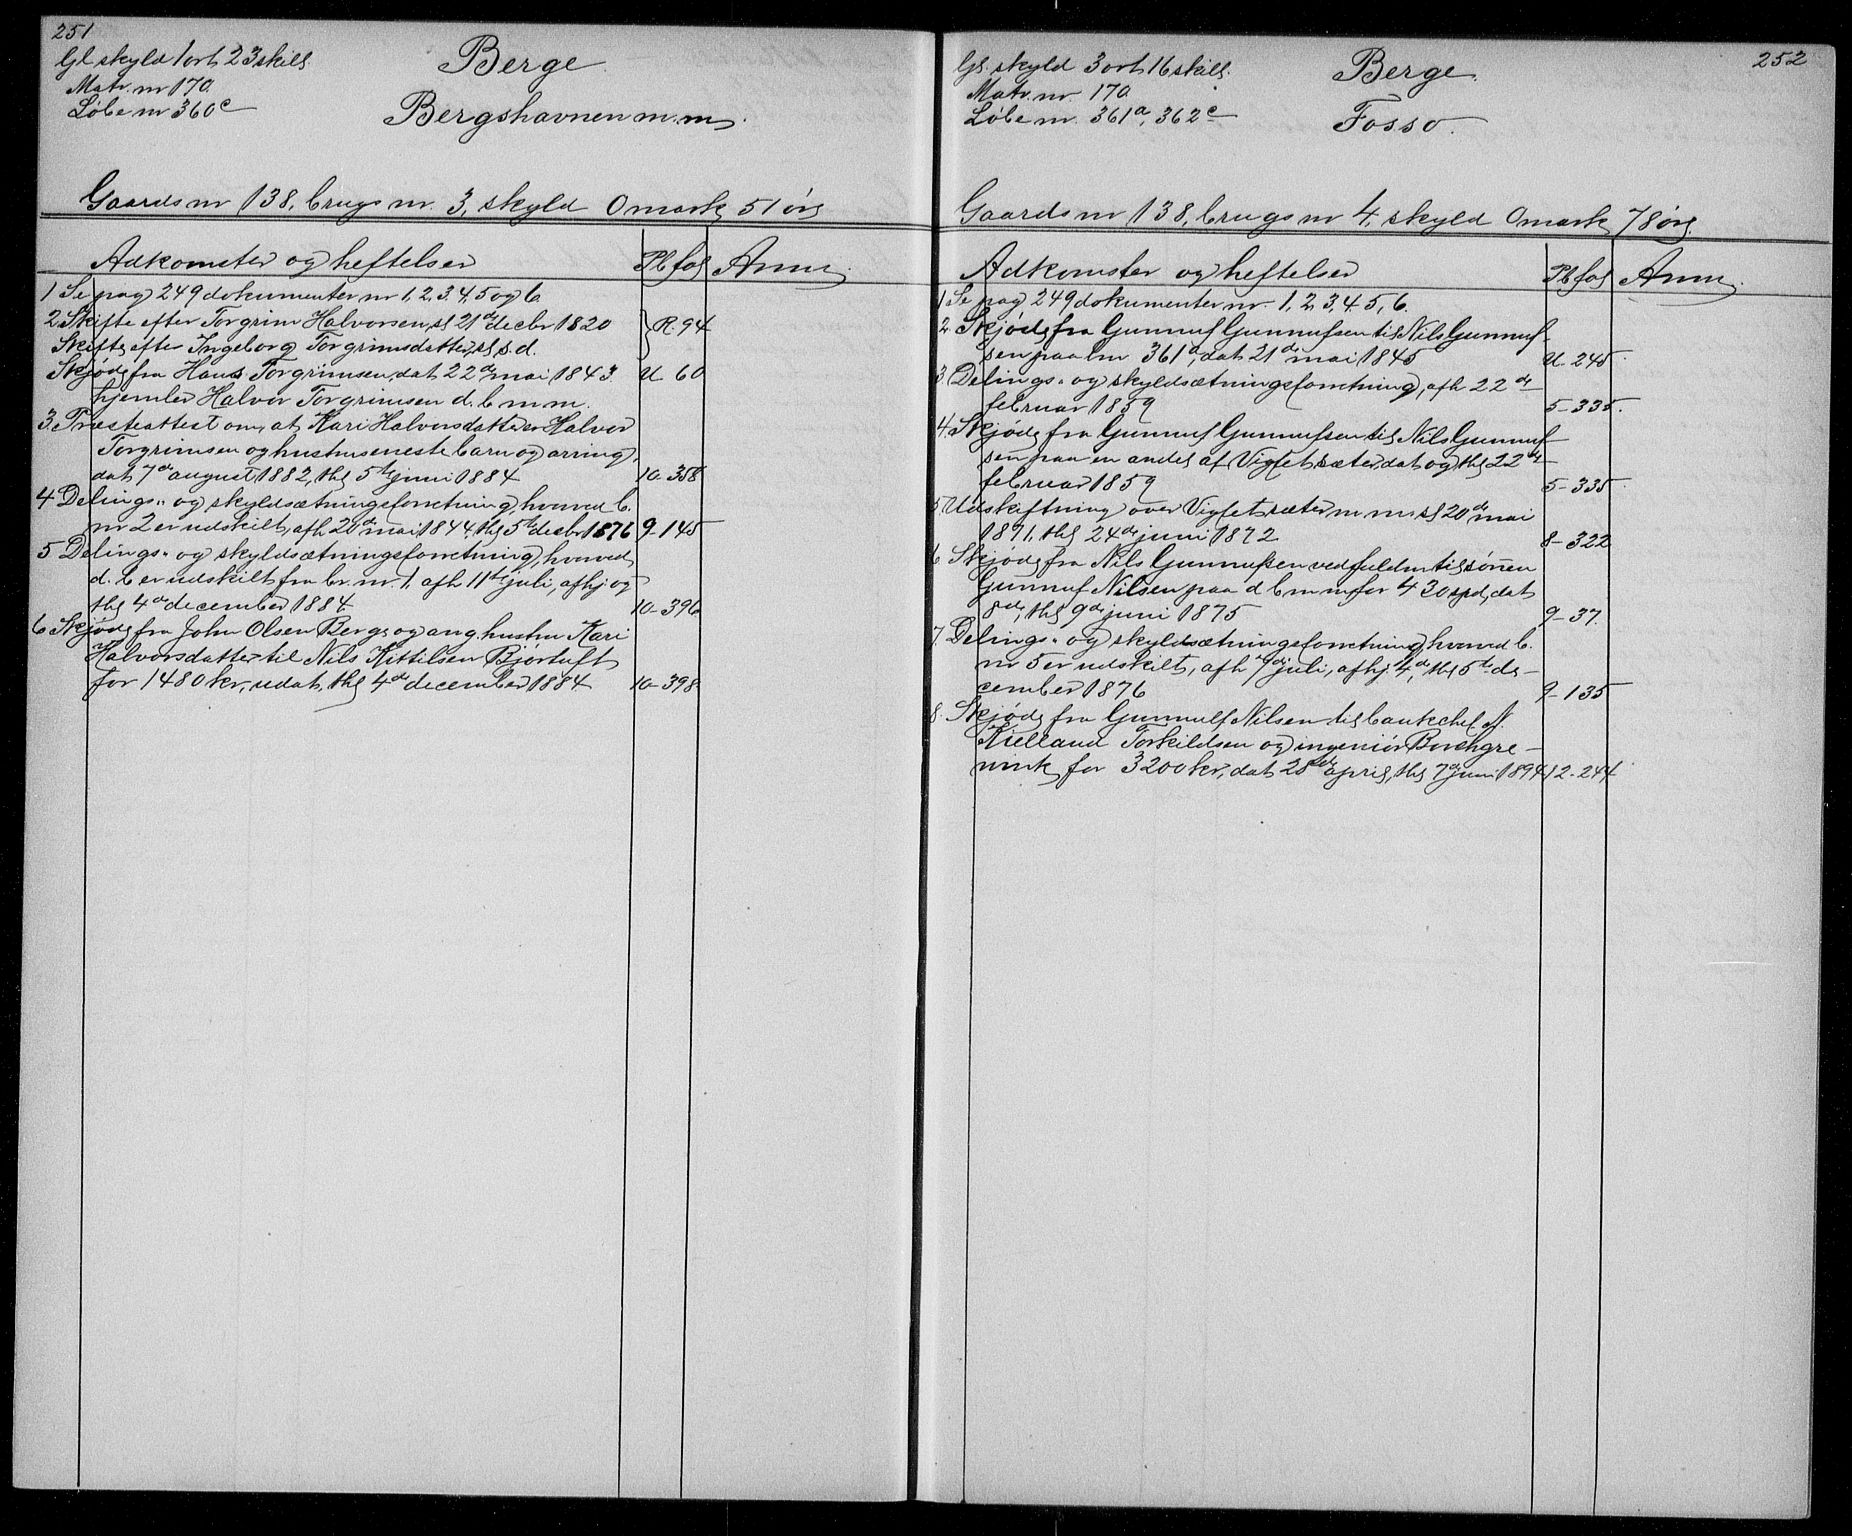 251
Gl skyld 1 ort 23 skill.
Matr. nr 170
Løbe nr 360c
Berge
Bergshavnen m. m.
Gaards nr 138, brugs nr. 3, skyld 0 mark 51 øre
Adkomster og heftelser Pb fol Anm.
1 Se pag 249 dokumenter nr 1, 2, 3, 4, 5 og 6
2 Skifte efter Torgrim Halvorsen, sl 21de decbr 1820 R. 94
Skifte efter Ingeborg Torgrimsdatter, sl s. d.
Skjøde fra Hans Torgrimsen, dat 22de mai 1843 U 60
hjemler Halvor Torgrimsen d. b m. m.
3. Præsteattest om, at Kari Halvorsdatter er Halvor
Torgrimsen og hustrus eneste barn og arving,
dat 7de august 1882, thl 5te juni 1884 10-358
4 Delings- og skyldsætningsforretning, hvorved b.
nr 2 er udskilt, afh 20de mai 1844, thl 5te decbr 1876 9-145
5 Delings- og skyldsætningsforretning, hvorved
d. b er udskilt fra br. nr 1, afh 11te juli, afhj og
thl 4de december 1884 10-396
6 Skjøde fra John Olsen Berge og ang. hustru Kari
Halvorsdatter til Nils Kittilsen Bjørtuft
for 1480 kr, udat, thl 4de december 1884 10-398
252
Gl. skyld 3 ort 16 skill.
Matr. nr. 170
Løbe nr. 361a, 362c
Berge.
Fosso.
Gaards nr 138, brugs nr 4, skyld 0 mark 78 øre
Adkomster og heftelser Pb fol Anm.
1 Se pag 249 dokumenter nr. 1, 2, 3, 4, 5, 6.
2 Skjøde fra Gunnuf Gunnufsen til Nils Gunnuf-
sen paa lnr 361a, dat 21de mai 1845 U. 245.
3 Delings- og skyldsætningsforretning, afh 22de
februar 1859 5-335.
4. Skjøde fra Gunnuf Gunnufsen til Nils Gunnuf-
sen paa en andel af Vigfetsæter, dat og thl 22de
februar 1859 5-335
5 Udskiftning over Vigfetsæter m. m. sl 20de mai
1871, thl 24de juni 1872 8-322
6 Skjøde fra Nils Gunnufsen ved fuldm til sønnen
Gunnuf Nilsen paa d b m m for 430 spd, dat
8de, thl 9de juni 1875 9-37.
7. Delings- og skyldsætningsforretning, hvorved b.
nr 5 er udskilt, afh 7de juli, afhj. 4de, thl 5te de-
cember 1876 9-135
8. Skjøde fra Gunnulf Nilsen til bankchef N.
Kielland Torkildsen og ingeniør Borchgre-
vink for 3200 kr, dat 28de april, thl 7de juni 1894 12-244